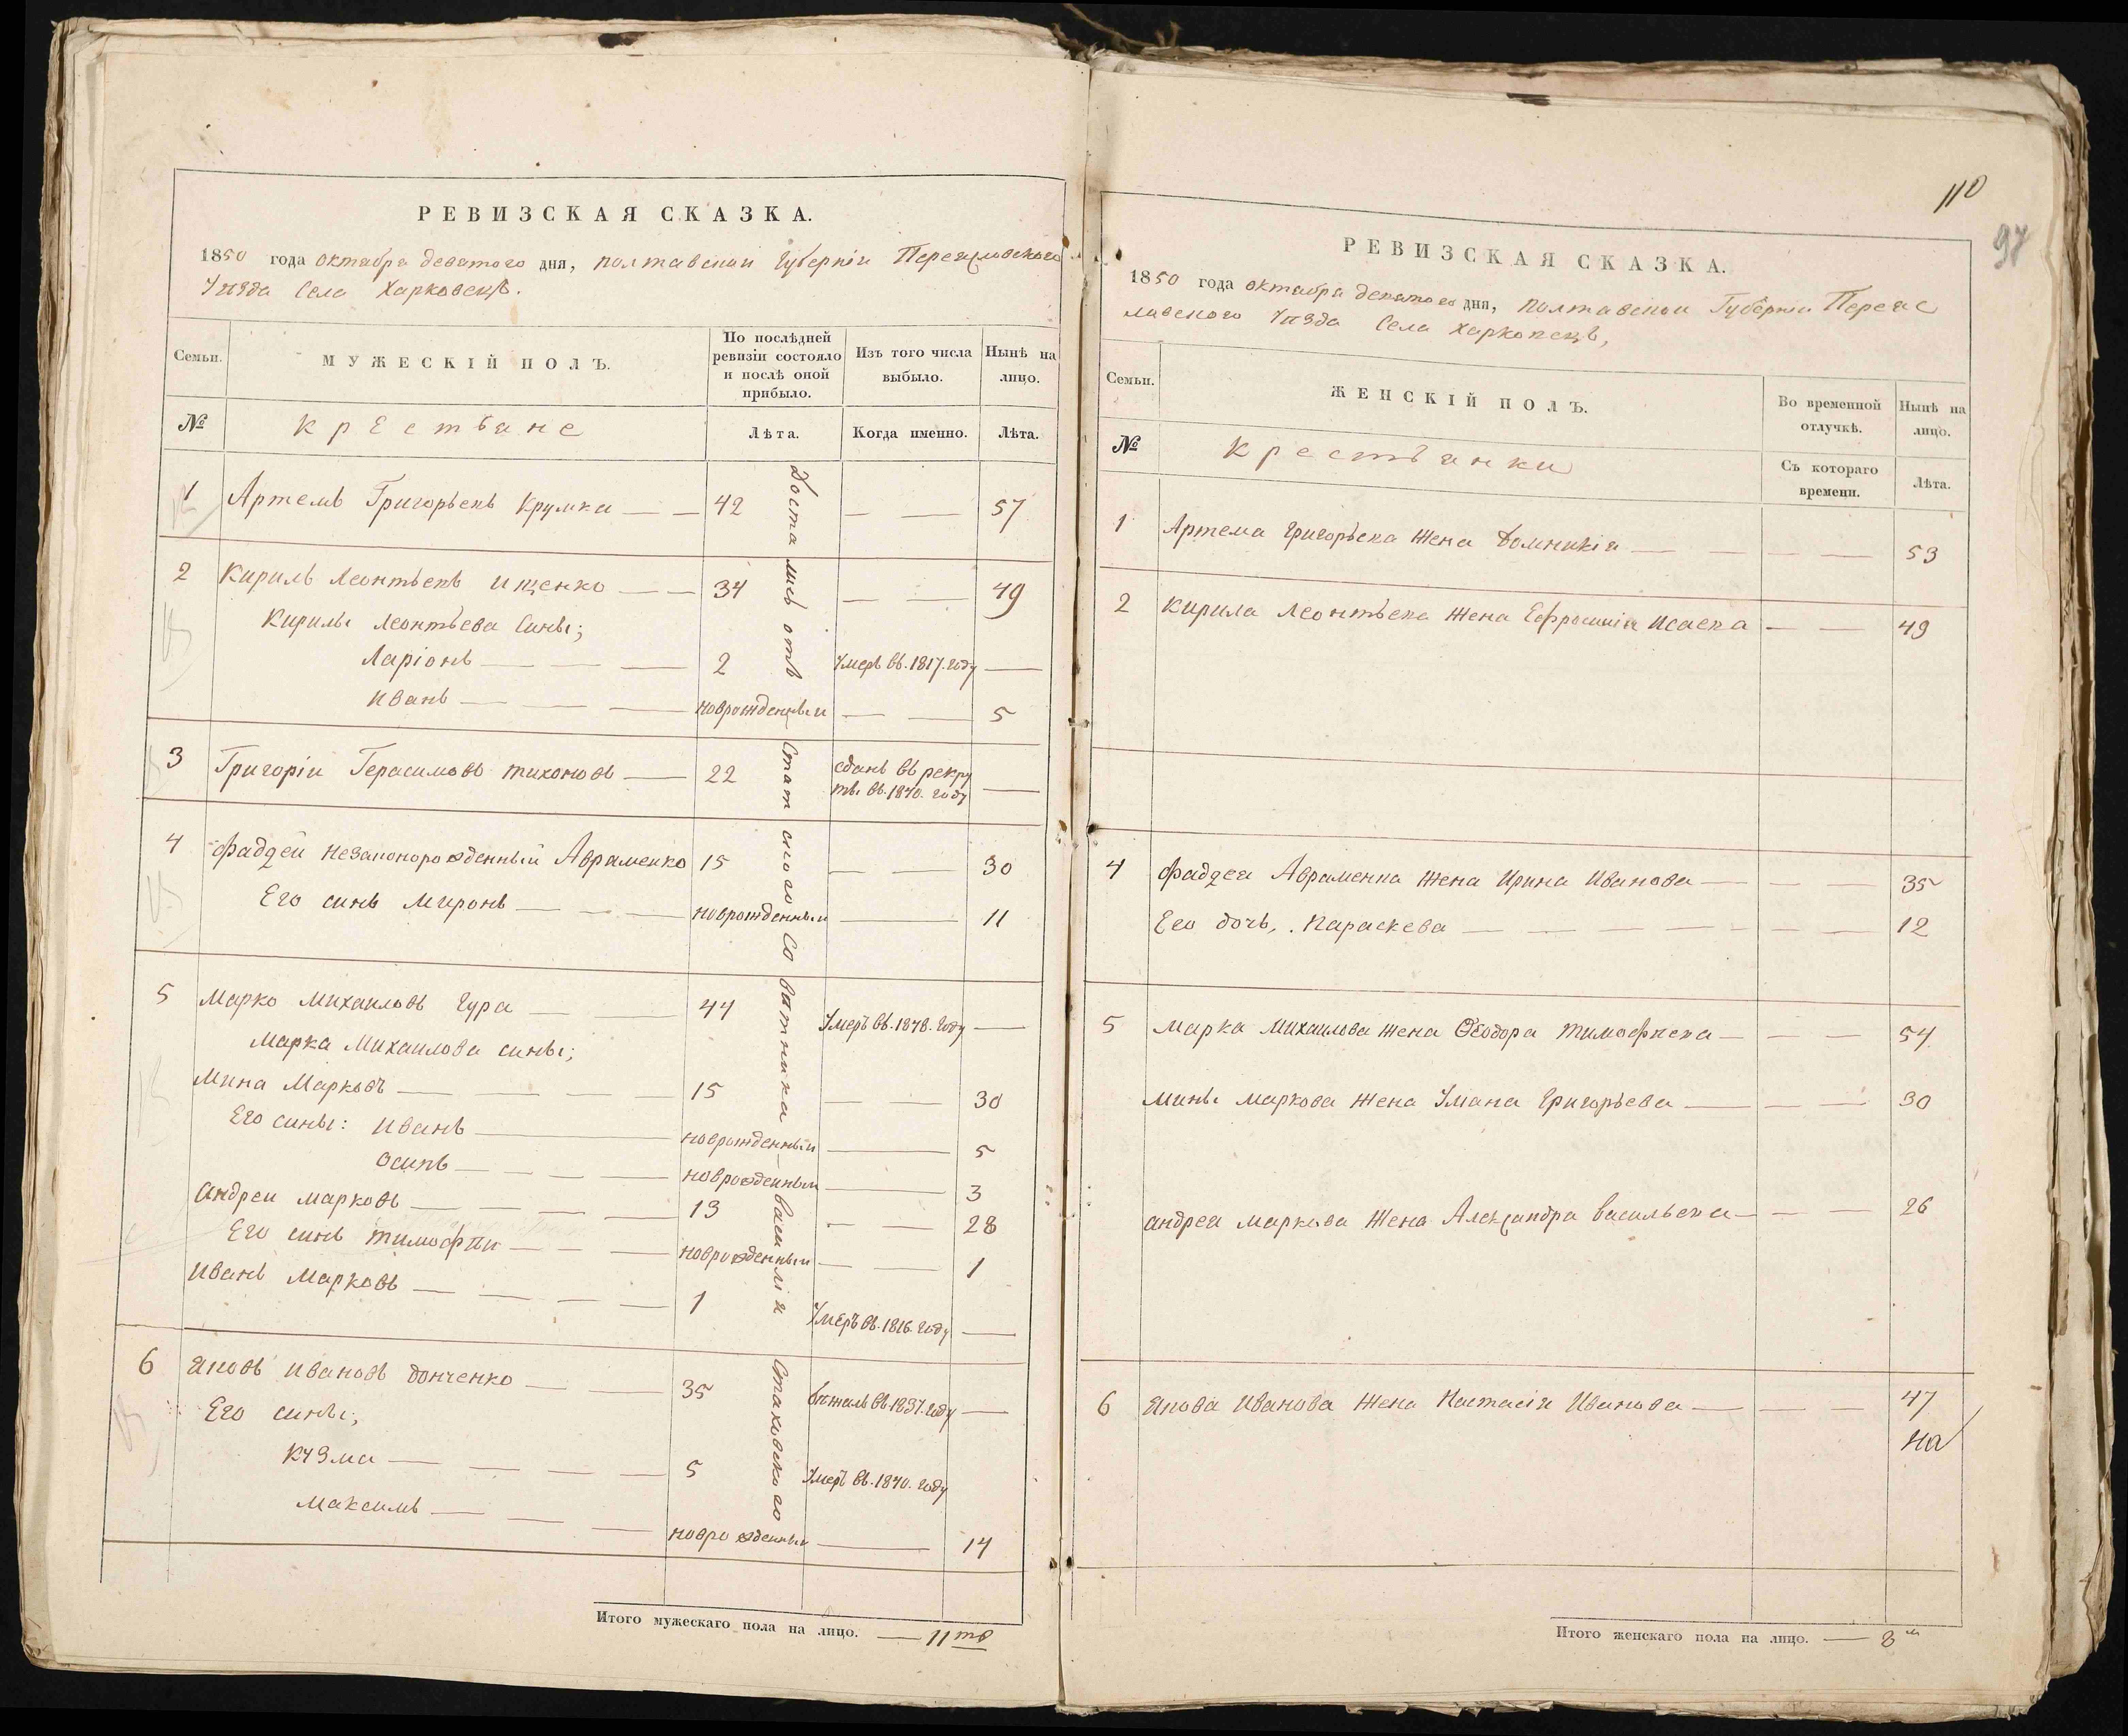 РЕВИЗСКАЯ СКАЗКА.
1850 года октабра деватого дня, полтавской Губерніи Переяславского
Уѣзда Села Харковецъ.
Семьи.
МУЖЕСКІЙ ПОЛЪ.
По послѣдней ревизіи состояло и послѣ оной прибыло.
Изъ того числа выбыло.
Нынѣ на лицо.
№
крестьяне
Лѣта.
Когда именно.
Лѣта.
1 Артемъ Григорьевъ Крумка 42 57
2 Кирилъ Леонтьевъ Ищенко 34 49
Кирилы Леонтьева сины;
Ларіонъ 2 Умеръ въ.1817.году
Иванъ новрожденный 5
3 Григоріи Герасимовъ тихоновъ 22 сданъ въ рекру
ты въ.1840.году
4 Фаддей незаконорожденный Авраменко 15 30
Его синъ Миронъ новрожденный 11
5 Марко Михаиловъ Гура 44 Умеръ въ.1848.году
Марка Михаилова сины;
Мина Марковъ 15 30
Его сины: Иванъ новрожденный 5
Осипъ новрожденный 3
Андреи Марковъ 13 28
Его синъ тимофѣи новрожденный 1
Иванъ Марковъ 1 Умеръ въ.1816.году
6 Яковъ Ивановъ донченко 35 бѣжалъ въ.1837.году
Его сины;
Кузма 5 Умеръ въ.1840.году
Максимъ новрожденный 14
Достались отъ Стат ского Со ватника василія Стаховского
Итого мужескаго пола на лицо. 11ть
110
97
РЕВИЗСКАЯ СКАЗКА.
1850 года октабра деватого дня, Полтавской Губерніи Переяс
лавского Уѣзда Села Харковецъ,
Семьи.
ЖЕНСКІЙ ПОЛЪ.
Во временной отлучкѣ.
Нынѣ на лицо.
№
крестьянки
Съ котораго времени.
Лѣта.
1 Артема Григорьева жена Домникія 53
2 Кирила Леонтьева жена Ефросинія Исаева 49
4 Фаддея Авраменка жена Ирина Иванова 35
Его дочь, Параскева 12
5 Марка Михаилова жена Ѳеодора Тимофѣева 54
Мины Маркова жена Умана Григорьева 30
андрея Маркова жена Александра васильева 26
6 Якова Иванова жена Настасія Иванова 47
на
Итого женскаго пола на лицо. 8м